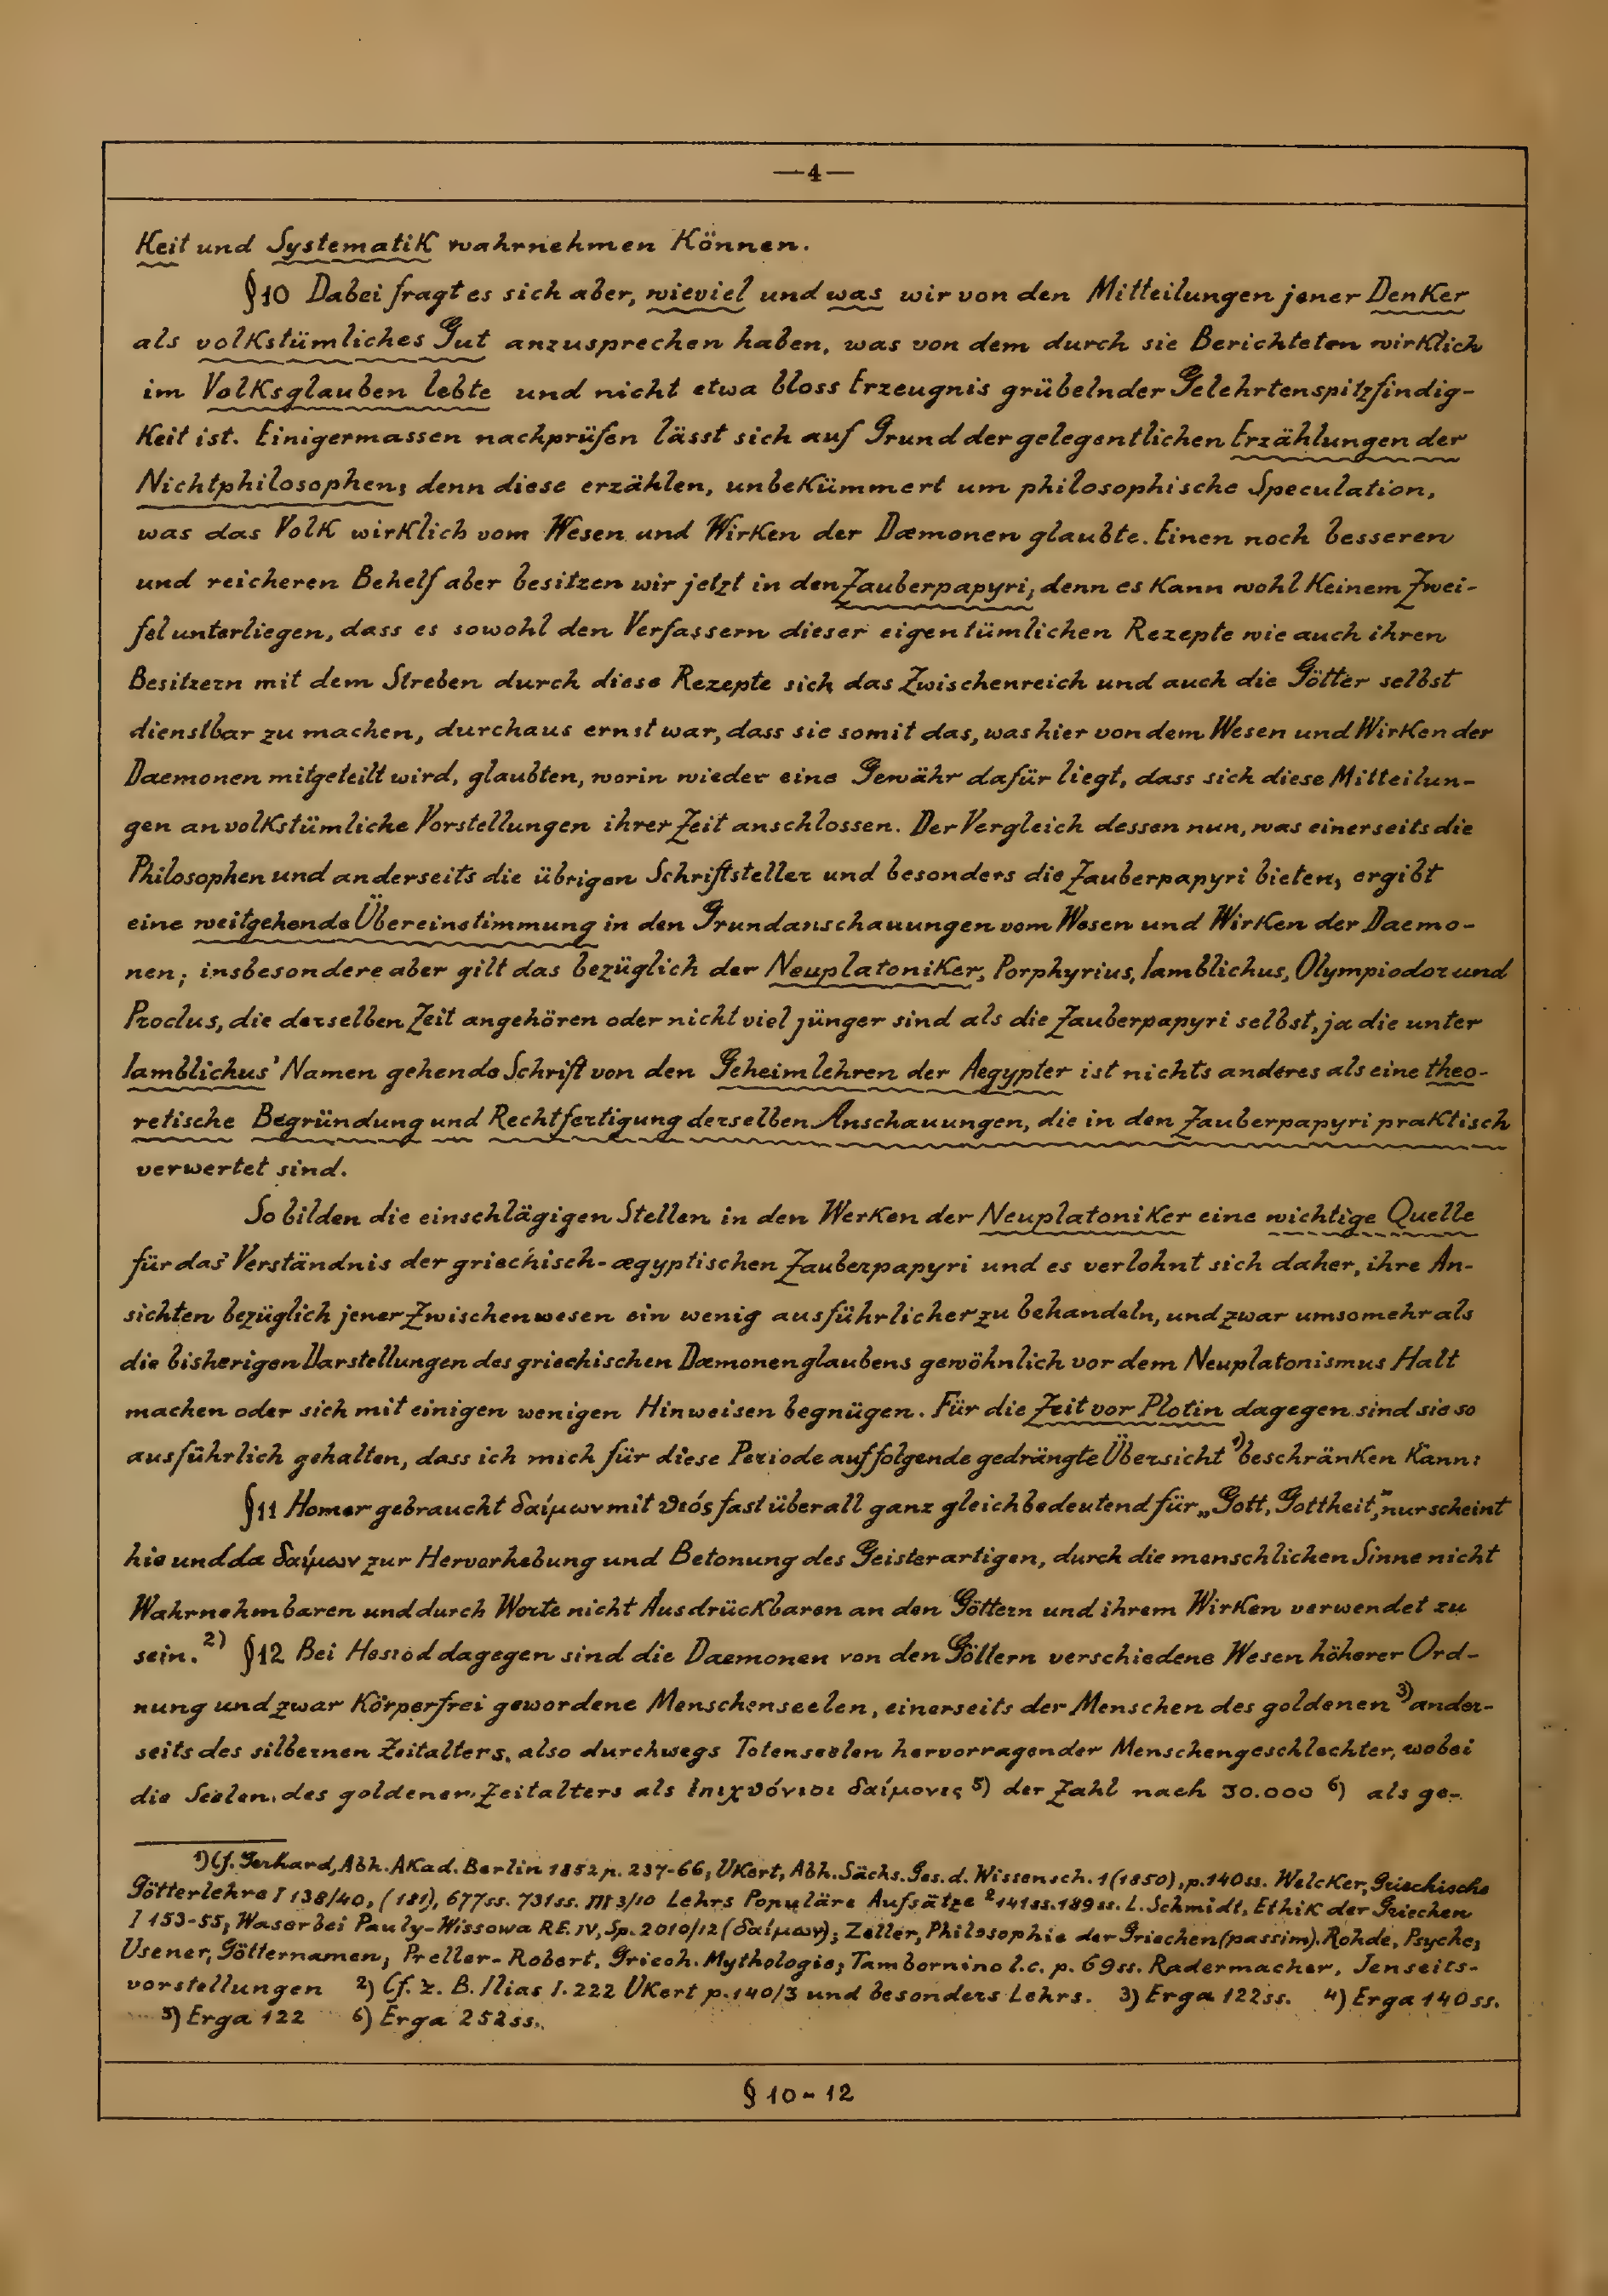 —4—
keit und Systematik wahrnehmen können.
§10 Dabei fragt es sich aber, wieviel und was wir von den Mitteilungen jener Denker
als volkstümliches Gut anzusprechen haben, was von dem durch sie Berichteten wirklich
im Volksglauben lebte und nicht etwa bloss Erzeugnis grübelnder Gelehrtenspitzfindig-
keit ist. Einigermassen nachprüfen lässt sich auf Grund der gelegentlichen Erzählungen der
Nichtphilosophen; denn diese erzählen, unbekümmert um philosophische Speculation,
was das Volk wirklich vom Wesen und Wirken der Dæmonen glaubte. Einen noch besseren
und reicheren Behelf aber besitzen wir jetzt in den Zauberpapyri; denn es kann wohl keinem Zwei-
fel unterliegen, dass es sowohl den Verfassern dieser eigentümlichen Rezepte wie auch ihren
Besitzern mit dem Streben durch diese Rezepte sich das Zwischenreich und auch die Götter selbst
dienstbar zu machen, durchaus ernst war, dass sie somit das, was hier von dem Wesen und Wirken der
Daemonen mitgeteilt wird, glaubten, worin wieder eine Gewähr dafür liegt, dass sich diese Mitteilun-
gen an volkstümliche Vorstellungen ihrer Zeit anschlossen. Der Vergleich dessen nun, was einerseits die
Philosophen und anderseits die übrigen Schriftsteller und besonders die Zauberpapyri bieten, ergibt
eine weitgehende Übereinstimmung in den Grundanschauungen vom Wesen und Wirken der Daemo-
nen; insbesondere aber gilt das bezüglich der Neuplatoniker, Porphyrius, Iamblichus, Olympiodor und
Proclus, die derselben Zeit angehören oder nicht viel jünger sind als die Zauberpapyri selbst, ja die unter
Iamblichus' Namen gehende Schrift von den Geheimlehren der Aegypter ist nichts anderes als eine theo-
retische Begründung und Rechtfertigung derselben Anschauungen, die in den Zauberpapyri praktisch
verwertet sind.
So bilden die einschlägigen Stellen in den Werken der Neuplatoniker eine wichtige Quelle
für das Verständnis der griechisch-ægyptischen Zauberpapyri und es verlohnt sich daher, ihre An-
sichten bezüglich jener Zwischenwesen ein wenig ausführlicher zu behandeln, und zwar umsomehr als
die bisherigen Darstellungen des griechischen Dæmonenglaubens gewöhnlich vor dem Neuplatonismus Halt
machen oder sich mit einigen wenigen Hinweisen begnügen. Für die Zeit vor Plotin dagegen sind sie so
ausführlich gehalten, dass ich mich für diese Periode auf folgende gedrängte Übersicht 1) beschränken kann:
§11 Homer gebraucht δαίμων mit ϑεός fast überall ganz gleichbedeutend für „Gott, Gottheit," nur scheint
hie und da δαίμων zur Hervorhebung und Betonung des Geisterartigen, durch die menschlichen Sinne nicht
Wahrnehmbaren und durch Worte nicht Ausdrückbaren an den Göttern und ihrem Wirken verwendet zu
sein. 2) §12 Bei Hesiod dagegen sind die Daemonen von den Göttern verschiedene Wesen höherer Ord-
nung und zwar körperfrei gewordene Menschenseelen, einerseits der Menschen des goldenen 3) ander-
seits des silbernen Zeitalters, also durchwegs Totenseelen hervorragender Menschengeschlechter, wobei
die Seelen des goldenen Zeitalters als ἐπιχϑόνιοι δαίμονες 5) der Zahl nach 30.000 6) als ge-
1) Cf. Gerhard, Abh. Akad. Berlin 1852 p. 237-66; Ukert, Abh. Sächs. Ges. d. Wissensch. 1 (1850), p. 140ss. Welcker, Griechische
Götterlehre I 138/40, (181), 677ss. 731ss. III 3/10 Lehrs Populäre Aufsätze ² 141ss. 189ss. L. Schmidt, Ethik der Griechen
I 153-55; Waser bei Pauly-Wissowa RE. IV, Sp. 2010/12 (δαίμων); Zeller, Philosophie der Griechen (passim). Rohde, Psyche;
Usener, Götternamen; Preller-Robert, Griech. Mythologie; Tambornino l.c. p. 69ss. Radermacher, Jenseits-
vorstellungen 2) Cf. z. B. Ilias I. 222 Ukert p. 140/3 und besonders Lehrs. 3) Erga 122ss. 4) Erga 140ss.
5) Erga 122 6) Erga 252ss.
§ 10 - 12